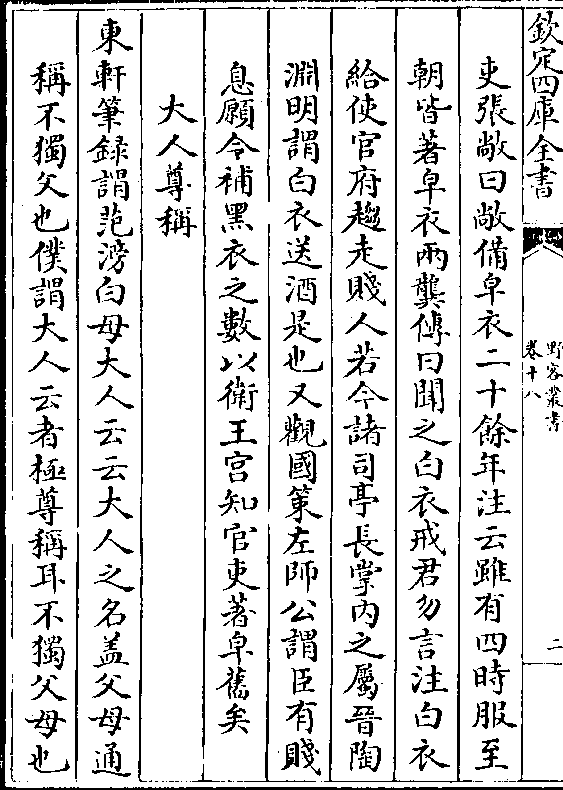 欽定四庫全書
野客叢書
卷十八
二
吏張敞曰敞備皁衣二十餘年注云雖有四時服至
朝皆著皁衣兩龔傳曰聞之白衣戒君勿言注白衣
給使官府趨走賤人若今諸司亭長掌内之屬晉陶
淵明謂白衣送酒是也又觀國策左師公謂臣有賤
息願令補黑衣之數以衛王宮知官吏著皁舊矣
大人尊稱
東軒筆録謂范滂白母大人云云大人之名盖父母通
稱不獨父也僕謂大人云者極尊稱耳不獨父母也